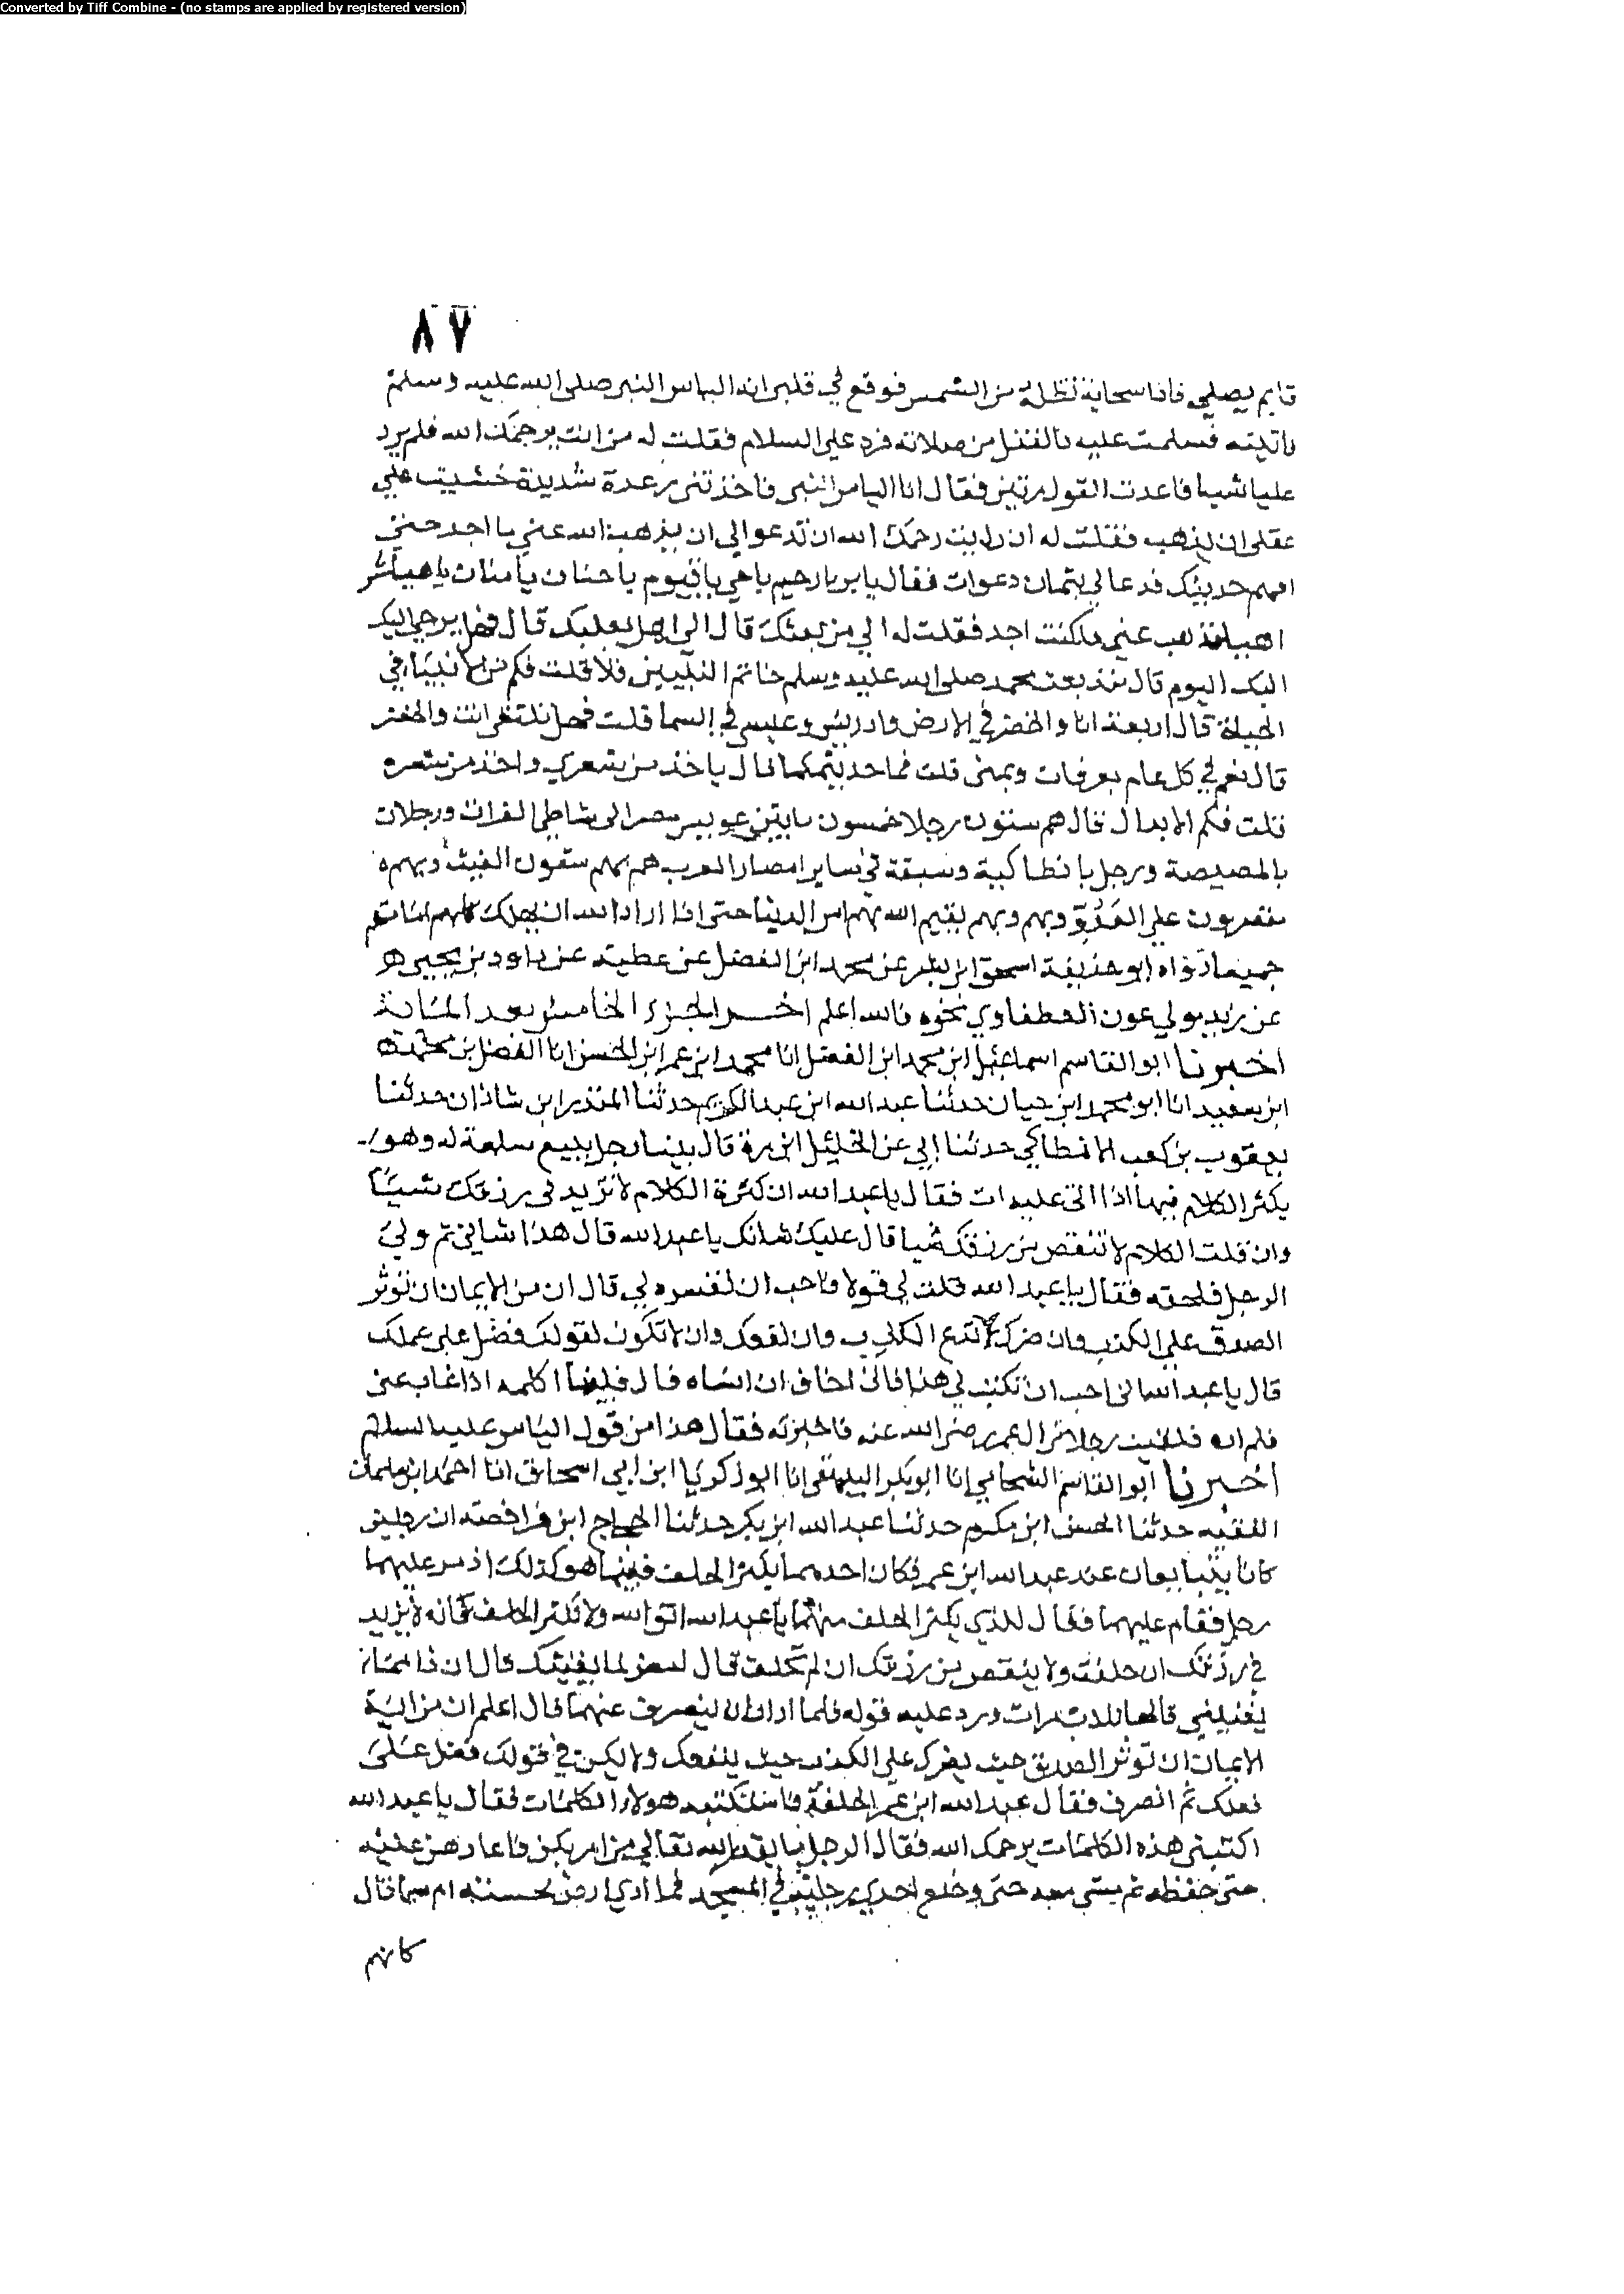 Converted by Tiff Combine - (no stamps are applied by registered version)
٨٧
قايم يصلي فاذا سحابة تظله من الشمس فوقع في قلبي انه الياس النبي صلى الله عليه وسلم
فاتيته فسلمت عليه فانفتل من صلاته فرد علي السلام فقلت له من انت يرحمك الله فلم يرد
عليا شيا فاعدت القول مرتين فقال انا الياس النبي فاخذتني رعدة شديدة خشيت على
عقلي ان يذهب فقلت له ان رايت رحمك الله ان تدعوا لي ان يذهب الله عني ما اجد حتى
افهم حديثك فدعا لي بثمان دعوات فقال يا بر يا رحيم يا حي يا قيوم يا حنان يا منان يا هيا شر
اهيا فذهب عني ما كنت اجد فقلت له الي من بعثت قال الي اهل بعلبك قال فهل يوحي اليك
اليك اليوم قال منذ بعث محمد صلى الله عليه وسلم خاتم النبيين فلا قلت فكم من الانبيا في
الحياة قال اربعة انا والخضر في الارض وادريس وعيسى في السما قلت فهل تلتقي انت والخضر
قال نعم في كل عام بعرفات وبمنى قلت فما حديثكما قال ياخذ من شعري واخذ من شعره
قلت فكم الابدال قال هم ستون رجلا خمسون ما بين عريش مصر الى شاطي الفرات ورجلان
بالمصيصة ورجل بانطاكية وسبعة في ساير امصار العرب هم بهم سقون الغيث وبهم
ينصرون علي العدو وبهم وبهم يقيم الله بهم امر الدنيا حتى اذا اراد الله ان يهلك كلهم اماتهم
جميعا رواه ابو حذيفة اسحق ابن بشر عن محمد ابن الفضل عن عطية عن داود بن يحيى
عن زيد مولي عون الطفاوي نحوه فالله اعلم اخر الجزء الخامس بعد الماية
اخبرنا ابو القاسم اسماعيل ابن محمد ابن الفضل انا محمد ابن عمر ابن الحسن انا الفضل بن محمد
ابن سعيد انا ابو محمد ابن حيان حدثنا عبد الله ابن عبد الكريم حدثنا المنذر ابن شاذان حدثنا
يعقوب بن كعب الانطاكي حدثنا ابي عن الخليل ابن مرة قال بينا رجل يبيع سلعة له وهو
يكثر الكلام فيها اذا اتى عليه ات فقال يا عبد الله ان كثرة الكلام لا تزيد في رزقك شيئا
وان قلت الكلام لا تنقص من رزقك شيا قال عليك شانك يا عبد الله قال هذا شاني ثم ولي
الرجل فلحقه فقال يا عبد الله قلت لي قولا فاحب ان تفسره لي قال ان من الايمان ان تؤثر
الصدق علي الكذب وان ضرك ولا تدع الكذب وان نفعك وان لا تكون لقولك فضل على عملك
قال يا عبد الله اني احب ان تكتب لي هذا فاني اخاف ان انساه قال فبينما اكلمه اذا غاب عني
فلم اره فلقيت رجلا من ال عمر رضي الله عنه فاخبرته فقال هذا من قول الياس عليه السلام
اخبرنا ابو القاسم الشحامي انا ابو بكر البيهقي انا ابو زكريا ابن ابي اسحاق انا احمد ابن سلمان
الفقيه حدثنا الحسن ابن مكرم حدثنا عبد الله ابن بكر حدثنا الحجاج ابن فرافصة ان رجلين
كانا يتبايعان عند عبد الله ابن عمر فكان احدهما يكثر الحلف فبينما هو كذلك اذ مر عليهما
رجل فقام عليهما فقال للذي يكثر الحلف منهما يا عبد الله اتق الله ولا تكثر الحلف فانه لا يزيد
في رزقك ان حلفت ولا ينقص من رزقك ان لم تحلف قال امض لما يعنيك قال ان ذا مما
يعنيني قالها ثلاث مرات ورد عليه قوله فلما اراد ان ينصرف عنهما قال اعلم ان من اية
الايمان ان توثر الصدق حيث يضرك علي الكذب حيث ينفعك ولا يكن في قولك فضل على
فعلك ثم انصرف فقال عبد الله ابن عمر الحقه فاستكتبه هولاء الكلمات فقال يا عبد الله
اكتبني هذه الكلمات يرحمك الله فقال الرجل ما يقدر الله تعالي من امر يكن فاعادهن عليه
حتى حفظه ثم مشي معه حتى وضع احدي رجليه في المسجد فما ادري ارض لحسته ام سما قال
كانهم